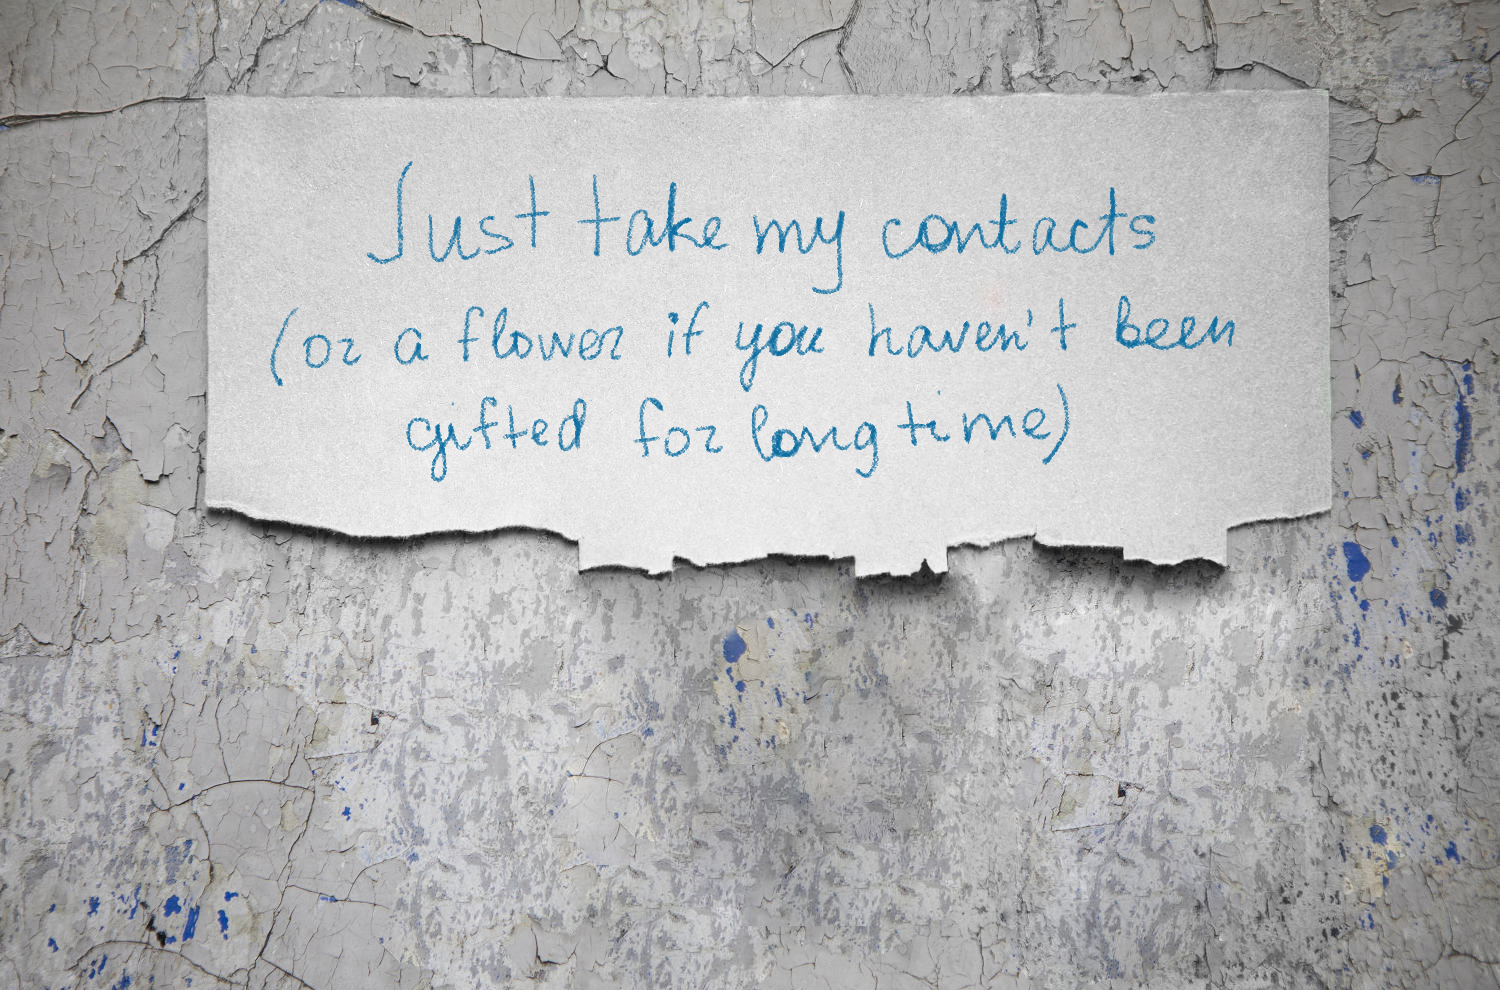 Just take my contacts
(or a flower if you haven't been
gifted for long time)